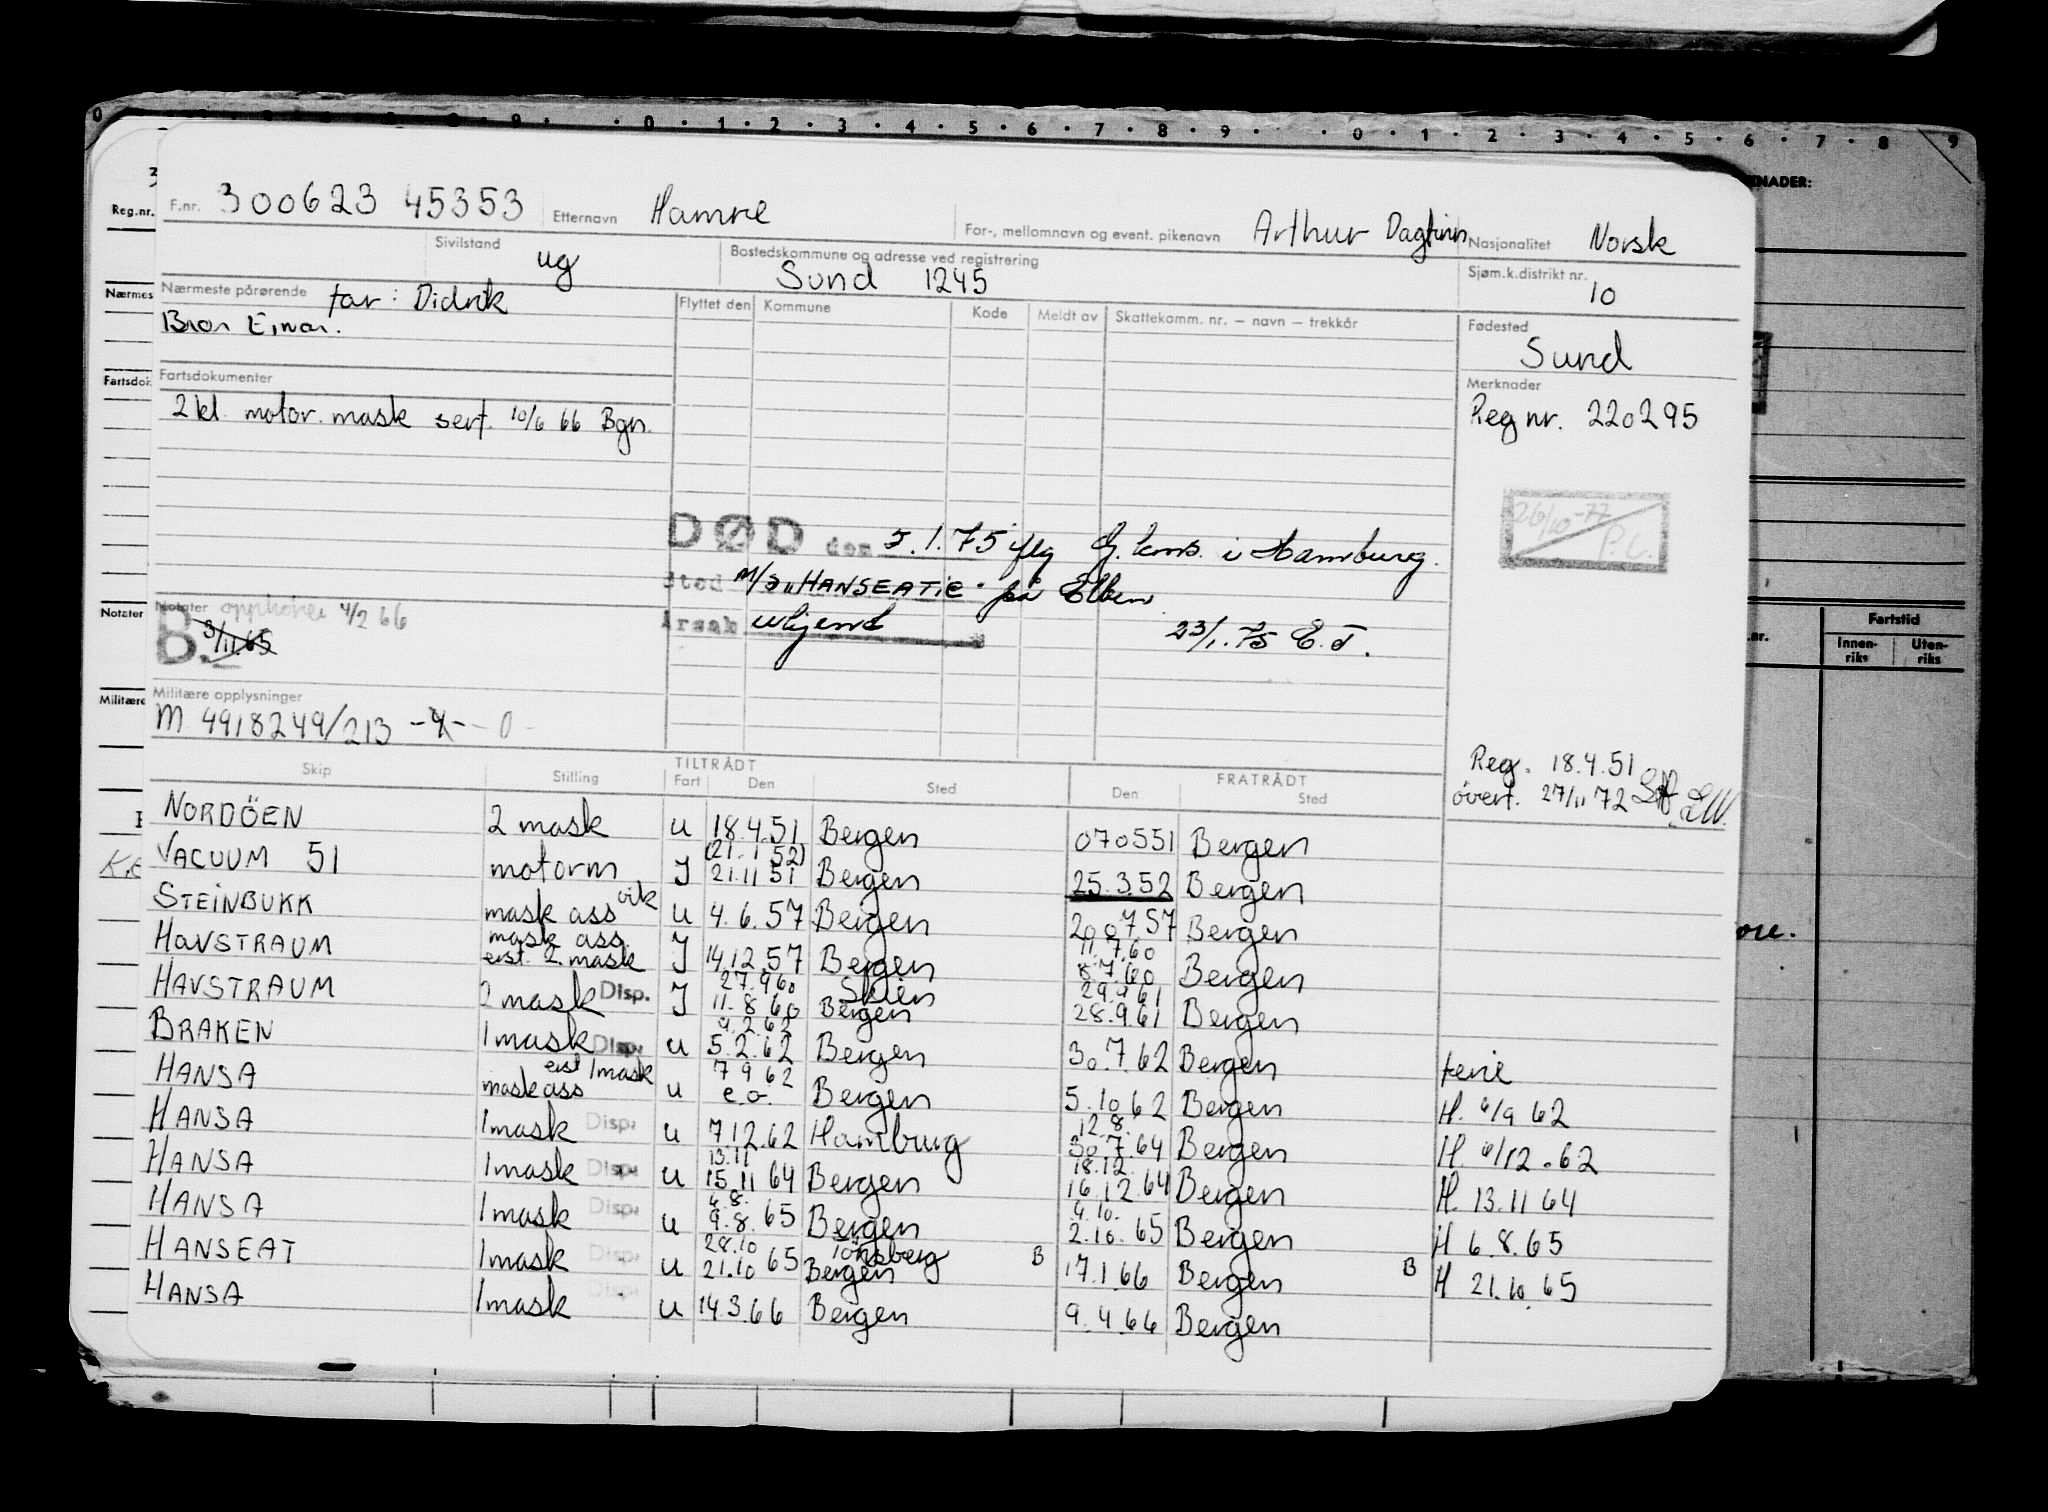 0 1 2 3 4 5 6 7 8 9 0 1 2 3 4 5 6 7 8 9
KNADER:
Reg.nr. F.nr. 300623 45353 Etternavn Hamre For-, mellomnavn og event. pikenavn Arthur Dagfinn Nasjonalitet Norsk
Sivilstand ug Bostedskommune og adresse ved registrering Sund 1245 Sjøm.k.distrikt nr. 10
Nærmes Nærmeste pårørende far: Didrik Flyttet den Kommune Kode Meldt av Skattekomm. nr. – navn – trekkår Fødested
Bror Einar. Sund
Fartsdok Fartsdokumenter Merknader
2 kl. motor. mask sert. 10/6 66 Bgn. Reg nr. 220295
26/10-77 P.C.
DØD den 5.1.75 iflg g. kons. i Hamburg.
Sted M/S "HANSEATIC" på Elben
Årsak ukjent 23/1.75 E.T.
Notater Notater opphøres 4/2 66
B. 3/11.65
Fartstid
.nr. Innen-riks Uten-riks
Militære Militære opplysninger
M 4918249/213 -4- -0-
Reg. 18.4.51
overf. 27/11 72
Skip Stilling TILTRÅDT Fart Den Sted FRATRÅDT Den Sted
NORDÖEN 2 mask u 18.4.51 Bergen 070551 Bergen
VACUUM 51 motorm J (21.1 52) 21.11 51 Bergen 25.3.52 Bergen
STEINBUKK mask ass vik u 4.6.57 Bergen 200757 Bergen
HAVSTRAUM mask ass. erst. 2. mask J 14.12.57 Bergen 11.7.60 8.7.60 Bergen
HAVSTRAUM 2 mask Disp. J 27.960 11.8.60 Skien Bergen 29.9 61 28.9.61 Bergen
BRAKEN 1 mask Disp. u 9.2.62 5.2.62 Bergen 30.7.62 Bergen ferie
HANSA erst 1 mask mask ass u 7 9 62 e.o. Bergen 5.10 62 Bergen H. 6/9 62
HANSA 1 mask Disp. u 7.12.62 Hamburg 12.8. 30.7.64 Bergen H. 6/12.62
HANSA 1 mask Disp. u 13.11 15.11 64 Bergen 18.12. 16.12.64 Bergen H. 13.11 64
HANSA 1 mask Disp. u 6.8. 9.8.65 Bergen 4.10. 2.10.65 Bergen H 6.8.65
HANSEAT 1 mask Disp. u 28.10 21.10 65 Tönsberg Bergen B 17.1.66 Bergen B H 21.10.65
HANSA 1 mask Disp. u 14.3.66 Bergen 9.4.66 Bergen